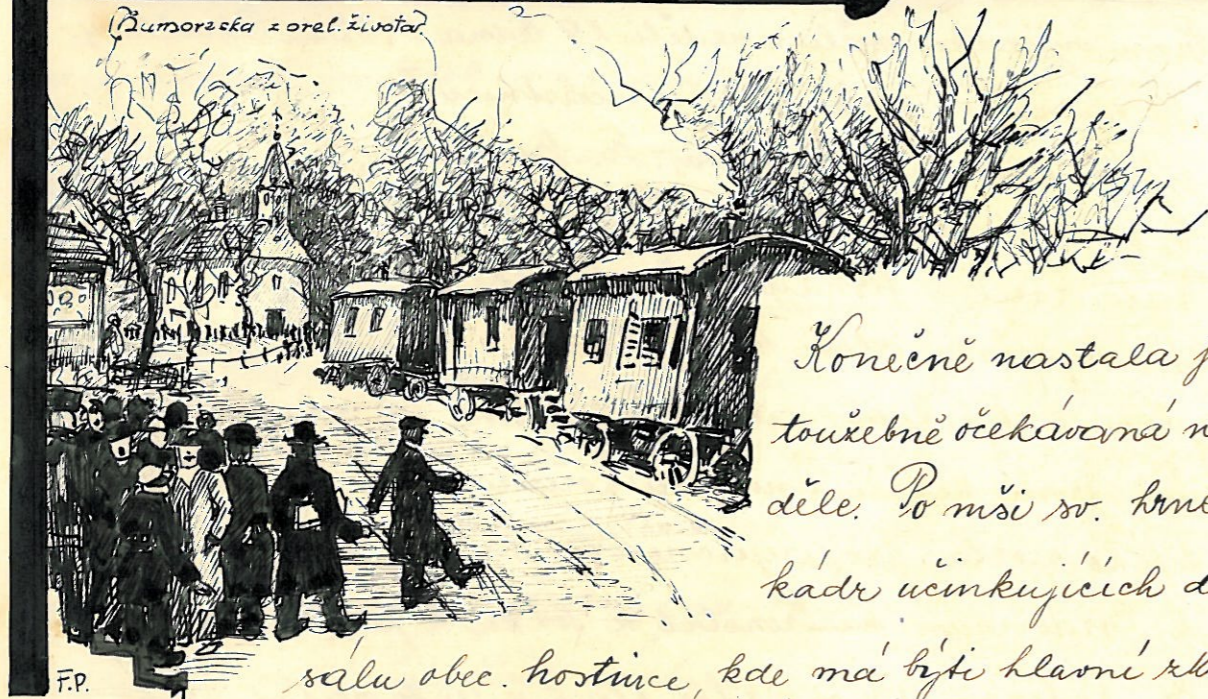 (Humoreska z orel. života)
Konečně nastala
toužebně očekávaná
děle. Po mši sv.
kádr učinkujících
sálu obec. hostince, kde má býti hlavní
F.P.